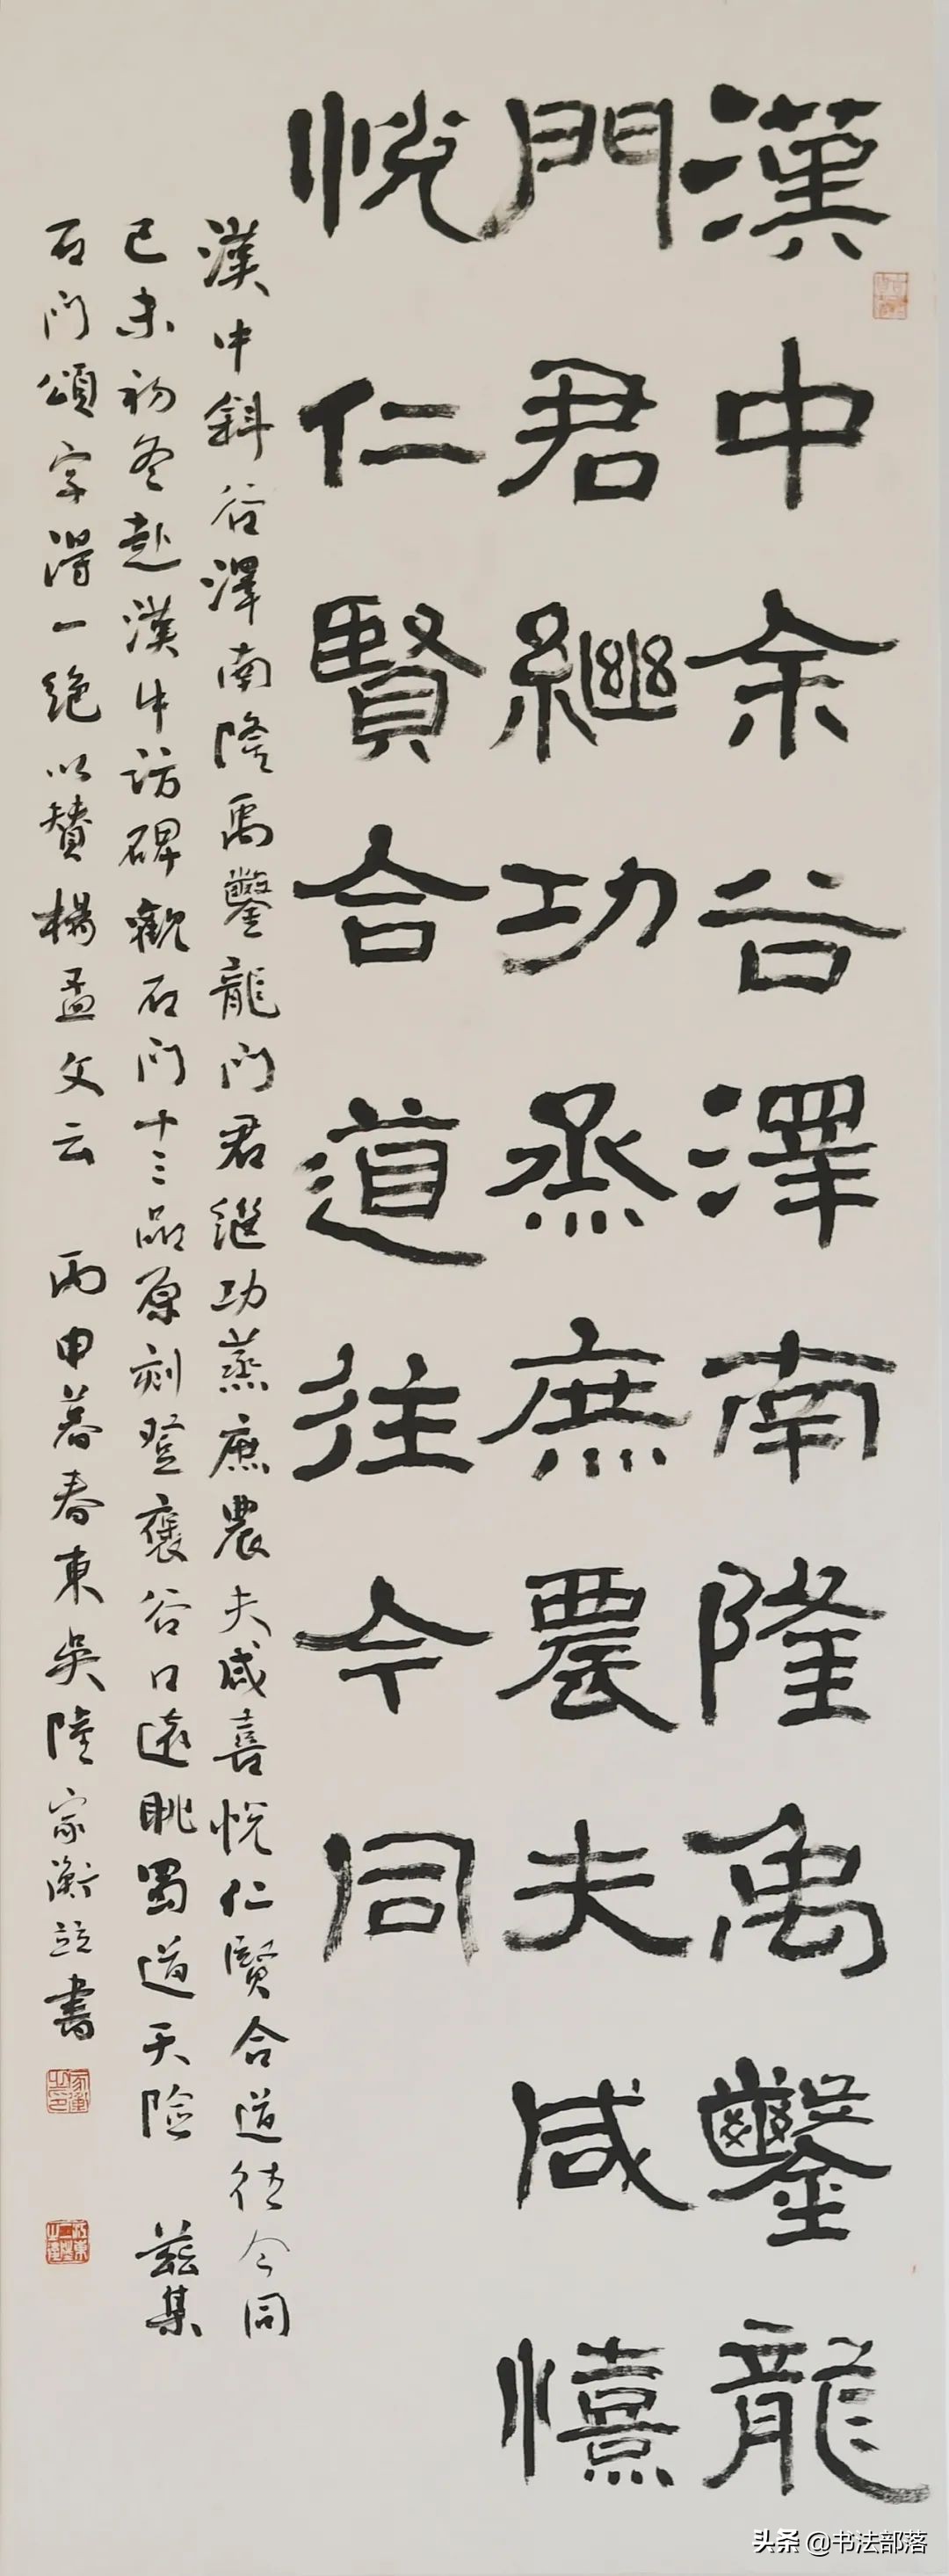 漢中余谷澤南隆禹鑿龍
門君継功烝庶農夫咸憘
悅仁賢合道往今同
漢中斜谷澤南隆禹鑿龍門君继功蒸庶農夫咸喜悅仁賢合道往今同
己未初冬赴漢中訪碑觀石门十三品原刻登褒谷口遠眺蜀道天險 茲集
石门頌字得一絕以贊楊孟文云 丙申暮春東吳陸家衡並書
头条 @书法部落